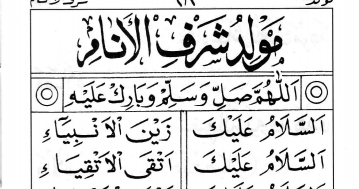 مَوْلِدُ شَرَفِ الْأَنَامِ
اَللّٰهُمَّ صَلِّ وَسَلِّمْ وَبَارِكْ عَلَيْهِ
اَلسَّلَامُ عَلَيْكَ زَيْنَ الْاَنْبِيَاءِ
اَلسَّلَامُ عَلَيْكَ اَتْقَى الْاَتْقِيَاءِ